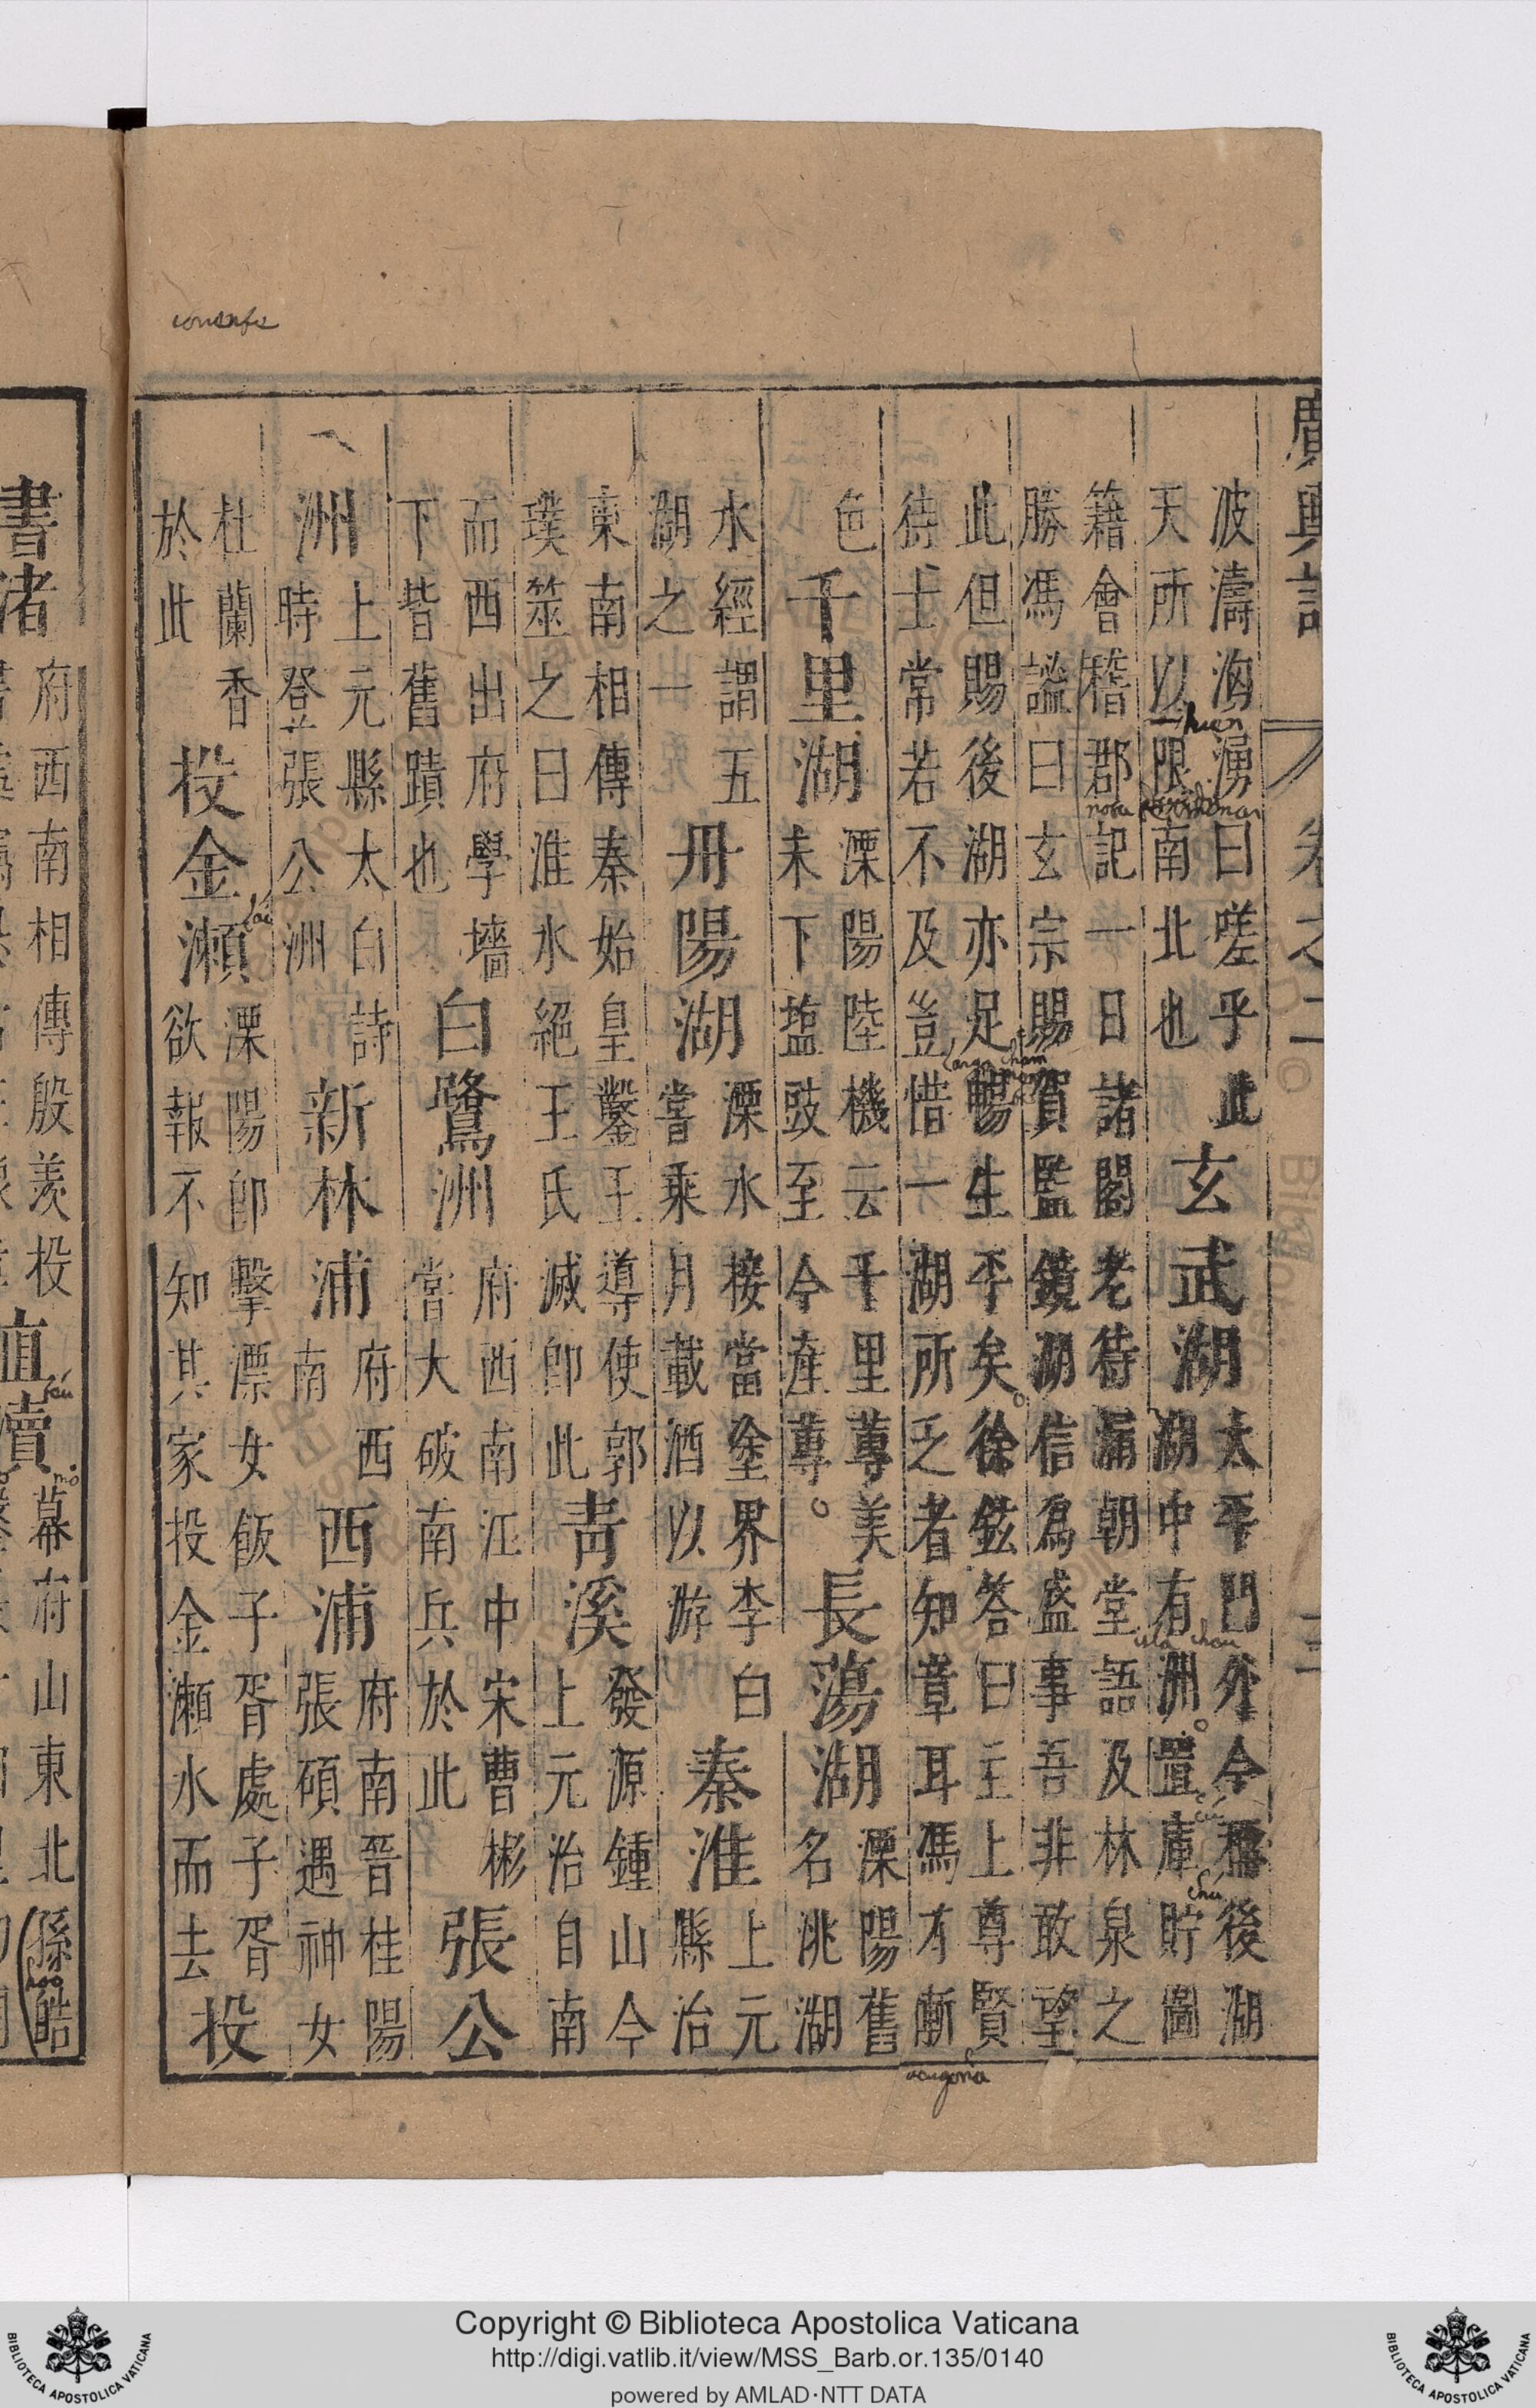 廣輿記
卷之二
波濤洶湧曰嗟乎此
天所以限南北也
玄武湖
太平門外今禋後湖
湖中有洲置庫貯圖
籍會稽郡記一日諸閣老待漏朝堂語及林泉之
勝馮謐曰玄宗賜賀監鏡湖信為盛事吾非敢望
此但賜後湖亦足暢生平矣徐鉉答曰主上尊賢
待士常若不及豈惜一湖所乏者知章耳馮有慚
色
千里湖
溧陽陸機云千里蓴美
未下鹽豉至今產蓴
長蕩湖
溧陽舊
名洮湖
水經謂五
湖之一
丹陽湖
溧水接當塗界李白
嘗乘月載酒以游
秦淮
上元
縣治
東南相傳秦始皇鑿王導使郭
璞筮之曰淮水絕王氏滅即此
青溪
發源鍾山今
上元治自南
而西出府學墻
下皆舊蹟也
白鷺洲
府西南江中宋曹彬
嘗大破南兵於此
張公
洲
上元縣太白詩
時登張公洲
新林浦
府西
南
西浦
府南晉桂陽
張碩遇神女
杜蘭香
於此
投金瀨
溧陽即擊漂女飯子胥處子胥
欲報不知其家投金瀨水而去
投
書渚
府西南相傳殷羨投
直瀆
幕府山東北孫皓
conense
huen
lai
isla chou
cú
chú
tú
mó
hao
Copyright © Biblioteca Apostolica Vaticana
http://digi.vatlib.it/view/MSS_Barb.or.135/0140
powered by AMLAD·NTT DATA
BIBLIOTECA APOSTOLICA VATICANA
BIBLIOTECA APOSTOLICA VATICANA